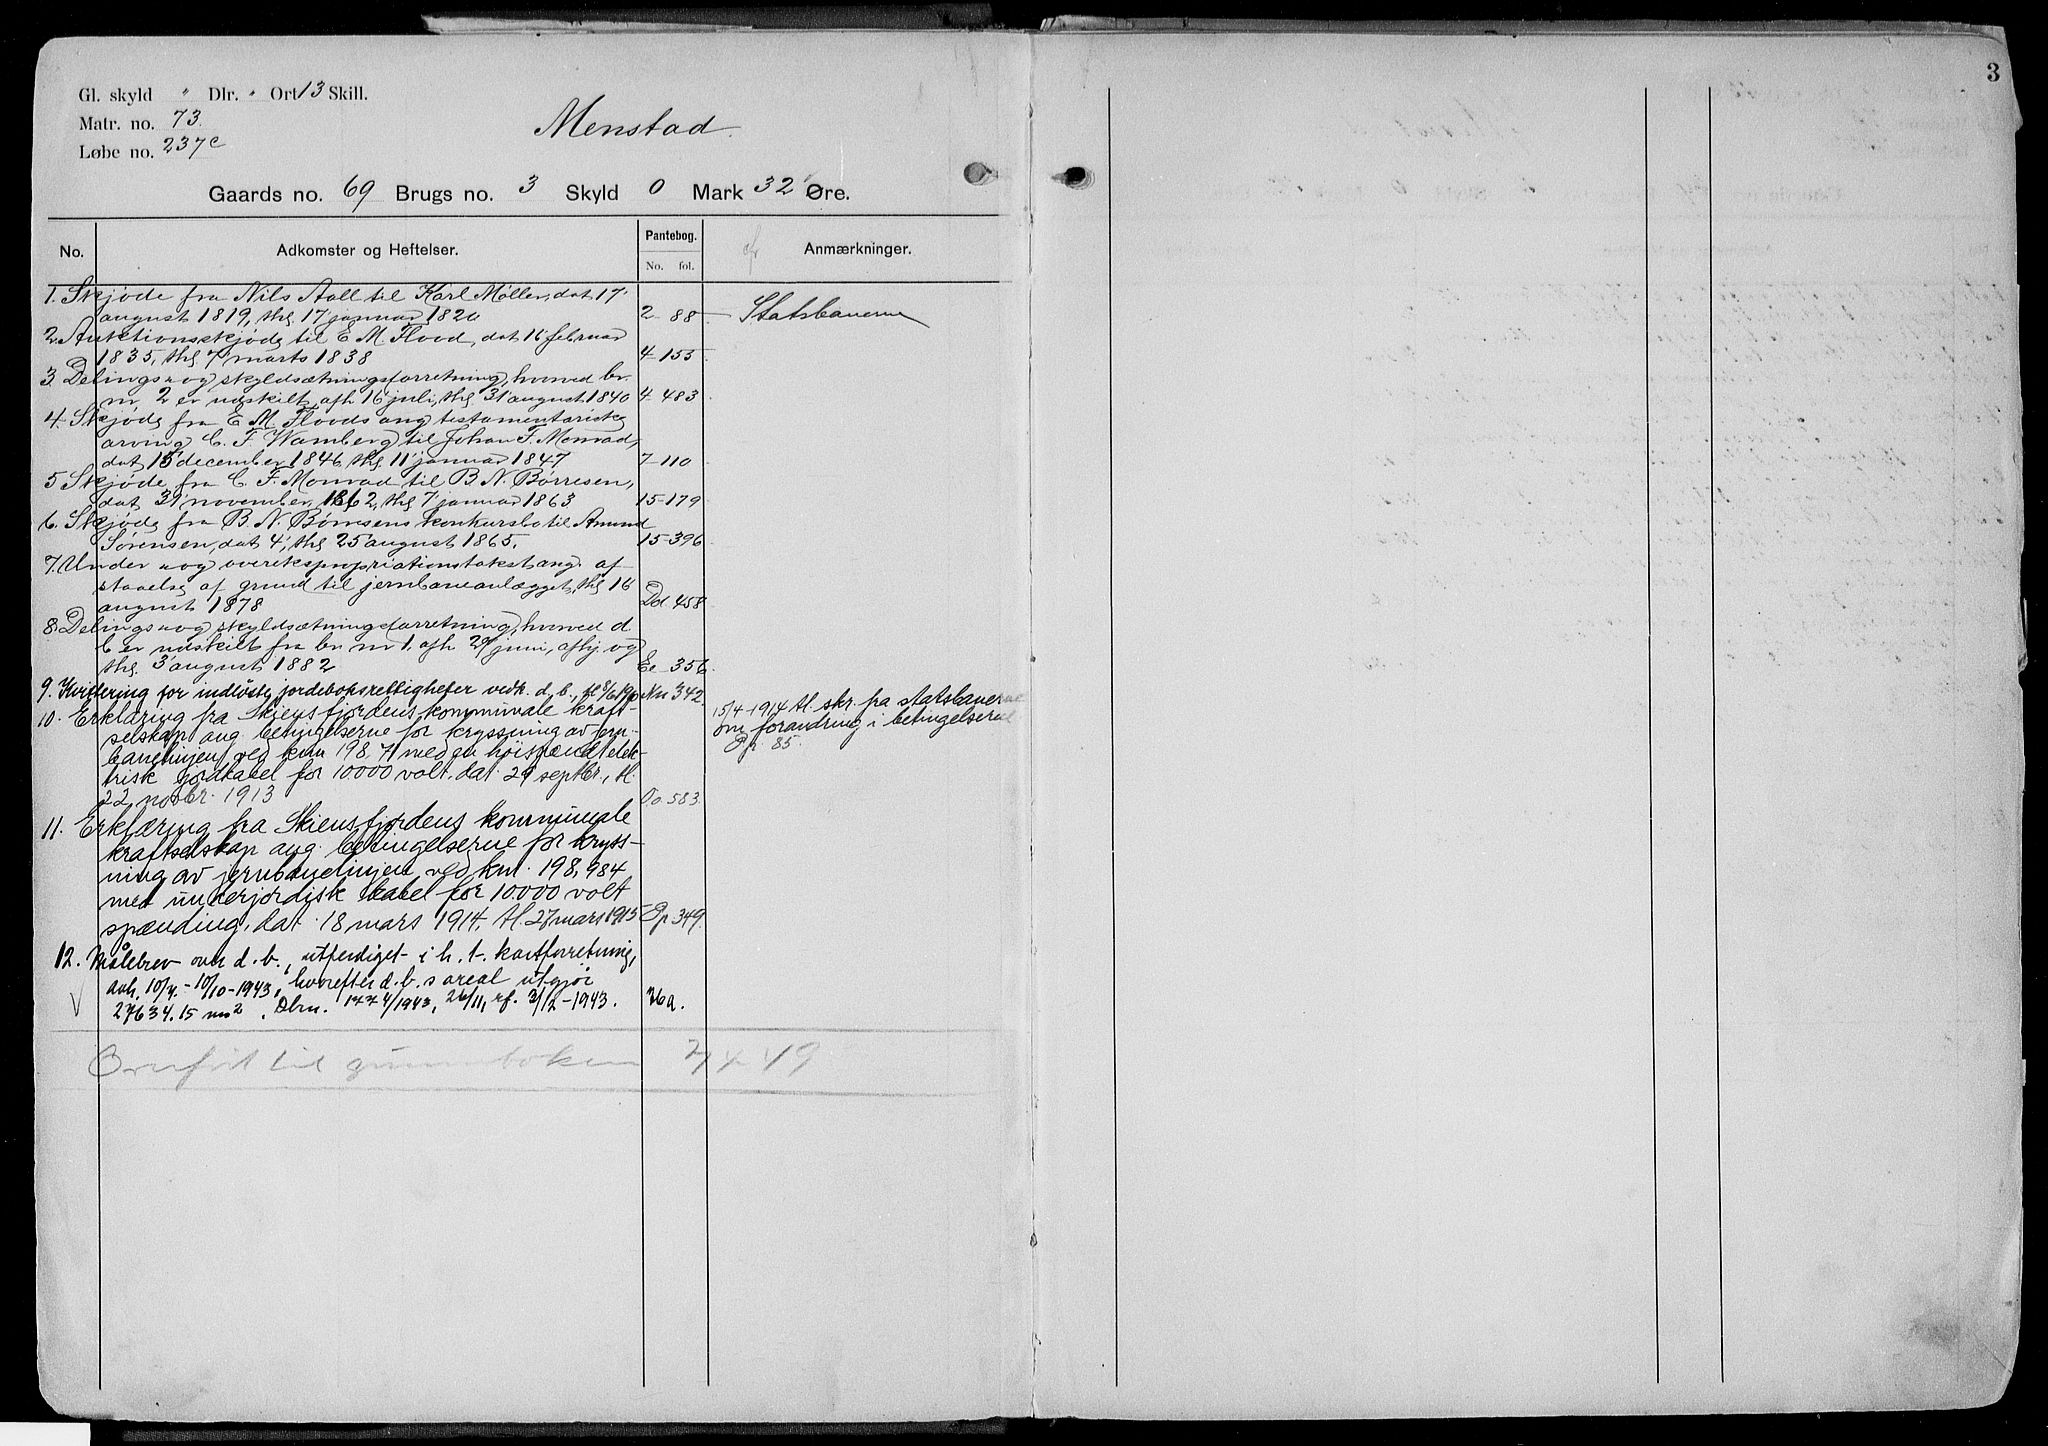 3
Gl. skyld " Dlr. " Ort 13 Skill.
Matr. no. 73.
Løbe no. 237c
Menstad.
Gaards no. 69 Brugs no. 3 Skyld 0 Mark 32 Øre.
No. Adkomster og Heftelser. Pantebog. No. fol. Anmærkninger.
1. Skjøde fra Nils Aall til Karl Møller, dat 17'
august 1819, thl 17 januar 1820 2 88 Statsbanerne
2. Auktionsskjøde til E M. Flood, dat 16 februar
1835, thl 7 marts 1838 4-155
3. Delings- og skyldsætningsforretning, hvorved br.
nr 2 er udskilt, afh 16 juli, thl 31 august 1840 4-483
4. Skjøde fra E M. Floods ang testamentariske
arving C. F. Wamberg til Johan F. Monrad,
dat 15 december 1846, thl 11' januar 1847 7-110
5 Skjøde fra C F. Monrad til B. N. Børresen,
dat 31' november 1862, thl 7' januar 1863 15-179
6. Skjøde fra B. N. Børresens konkursbo til Amund
Sørensen, dat 4', thl 25' august 1865. 15-396
7. Under- og overekspropriationstakst ang. af
staaelse af grund til jernbaneanlægget, thl 16
august 1878 Dd 458
8. Delings- og skyldsætningsforretning, hvorved d.
b er udskilt fra br nr 1, afh 29' juni, afhj. og
thl. 3' august 1882 Ee 356
9. Kvittering for indløste jordeboksrettigheter vedk. d. b., tl 8/6 190 Nn 342.
10. Erklæring fra Skiensfjordens kommunale kraft-
selskap ang. betingelserne for krysning av jern-
banelinjen ved km 198.7 med en høispændt elek-
trisk jordkabel for 10000 volt, dat. 29 septbr., tl.
22 novbr. 1913 Oo. 583.
15/4-1914 tl. skr. fra statsbanerne
om forandring i betingelserne
Pp. 85.
11. Erklæring fra Skiensfjordens kommunale
kraftselskap ang. betingelserne for kryss-
ning av jernbanelinjen ved km. 198,984
med underjordisk kabel for 10.000 volt
spænding, dat. 18 mars 1914, tl. 27 mars 1915 Pp 349.
12. Målebrev over d. b., utferdiget i h. t. kartforretning,
avh. 10/4.-10/10-1943, hvorefter d. b. s areal utgjør
27634.15 m2. Dbnr. 1774/1943, 26/11, rf. 3/12-1943. 26a.
Overført til grunnboken 2/4 49